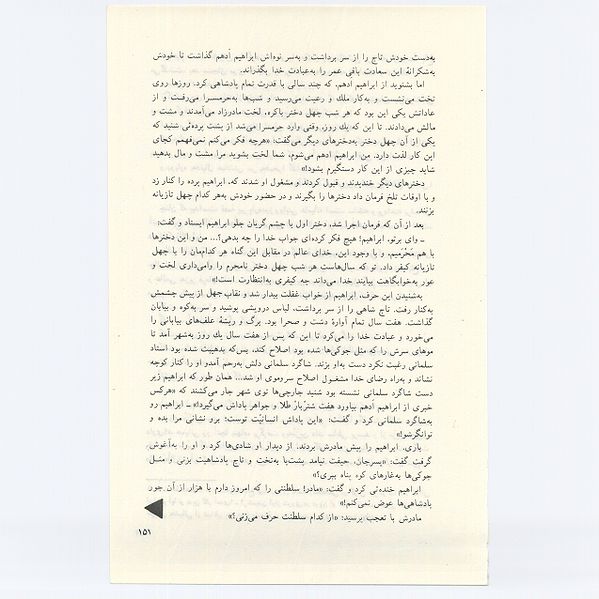 به‌دست خودش تاج را از سر برداشت و به‌سر نوه‌اش ابراهیم اَدهم گذاشت تا خودش
به‌شکرانهٔ این سعادت باقی عمر را به‌عبادت خدا بگذراند.
اما بشنوید از ابراهیم اَدهم، که چند سالی با قدرت تمام پادشاهی کرد. روزها روی
تخت می‌نشست و به‌کار ملك و رعیت می‌رسید و شب‌ها به‌حرمسرا می‌رفت و از
عاداتش یکی این بود که هر شب چهل دختر باکره، لخت مادرزاد می‌آمدند و مشت و
مالش می‌دادند. تا این که یك روز، وقتی وارد حرمسرا می‌شد از پشت پرده‌ئی شنید که
یکی از آن چهل دختر به‌دخترهای دیگر می‌گفت: «هرچه فکر می‌کنم نمی‌فهمم کجای
این کار لذت دارد. من ابراهیم ادهم می‌شوم، شما لخت بشوید مرا مشت و مال بدهید
شاید چیزی از این کار دستگیرم بشود!»
دخترهای دیگر خندیدند و قبول کردند و مشغول او شدند که، ابراهیم پرده را کنار زد
و با اوقات تلخ فرمان داد دخترها را بگیرند و در حضور خودش به‌هر کدام چهل تازیانه
بزنند.
بعد از آن که فرمان اجرا شد، دختر اول با چشم گریان جلو ابراهیم ایستاد و گفت:
ـ وای برتو، ابراهیم! هیچ فکر کرده‌ای جواب خدا را چه بدهی؟... من و این دخترها
با هم مَحْرَمیم، و با وجود این، خدای عالم در مقابل این گناه هر کدام‌مان را با چهل
تازیانه کیفر داد. تو که سال‌هاست هر شب چهل دختر نامحرم را وامی‌داری لخت و
عور به‌خوابگاهت بیایند خدا می‌داند چه کیفری به‌انتظارت است!»
به‌شنیدن این حرف، ابراهیم از خواب غفلت بیدار شد و نقاب جهل از پیش چشمش
به‌کنار رفت. تاج شاهی را از سر برداشت، لباس درویشی پوشید و سر به‌کوه و بیابان
گذاشت. هفت سال تمام آوارهٔ دشت و صحرا بود. برگ و ریشهٔ علف‌های بیابانی را
می‌خورد و عبادت خدا را می‌کرد تا این که پس از هفت سال یك روز به‌شهر آمد تا
موهای سرش را که مثل جوکی‌ها شده بود اصلاح کند، پس‌که بدهیبت شده بود استاد
سلمانی رغبت نکرد دست به‌او بزند. شاگرد سلمانی دلش به‌رحم آمدو او را کنار کوچه
نشاند و به‌راه رضای خدا مشغول اصلاح سروموی او شد... همان طور که ابراهیم زیر
دست شاگرد سلمانی نشسته بود شنید جارچی‌ها توی شهر جار می‌کشند که «هرکس
خبری از ابراهیم ادهم بیاورد هفت شتربار طلا و جواهر پاداش می‌گیرد!» ـ ابراهیم رو
به‌شاگرد سلمانی کرد و گفت: «این پاداش انسانیّت توست؛ برو نشانی مرا بده و
توانگرشو!»
باری، ابراهیم را پیش مادرش بردند. از دیدار او شادی‌ها کرد و او را به‌آغوش
گرفت گفت: «پسرجان، حیفت نیامد پشت‌پا به‌تخت و تاج پادشاهیت بزنی و مثـل
جوکی‌ها به‌غارهای کوه پناه ببری؟»
ابراهیم خنده‌ئی کرد و گفت: «مادر! سلطنتی را که امروز دارم با هزار از آن جور
پادشاهی‌ها عوض نمی‌کنم!»
مادرش با تعجب پرسید: «از کدام سلطنت حرف می‌زنی؟»
۱۵۱